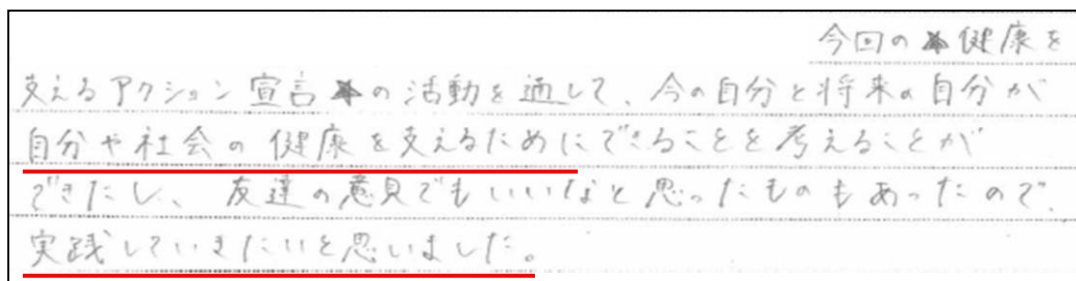 今回の健康を
支えるアクション宣言の活動を通して、今の自分と将来の自分が
自分や社会の健康を支えるためにできることを考えることが
できたし、友達の意見でもいいなと思ったものもあったので、
実践していきたいと思いました。